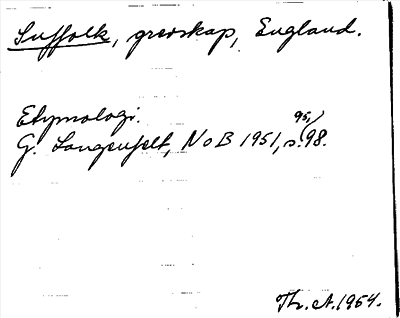 Suffolk, grevskap, England.
Etymologi.
G. Langenfelt, NoB 1951, s. 95, 98.
Th. A. 1954.